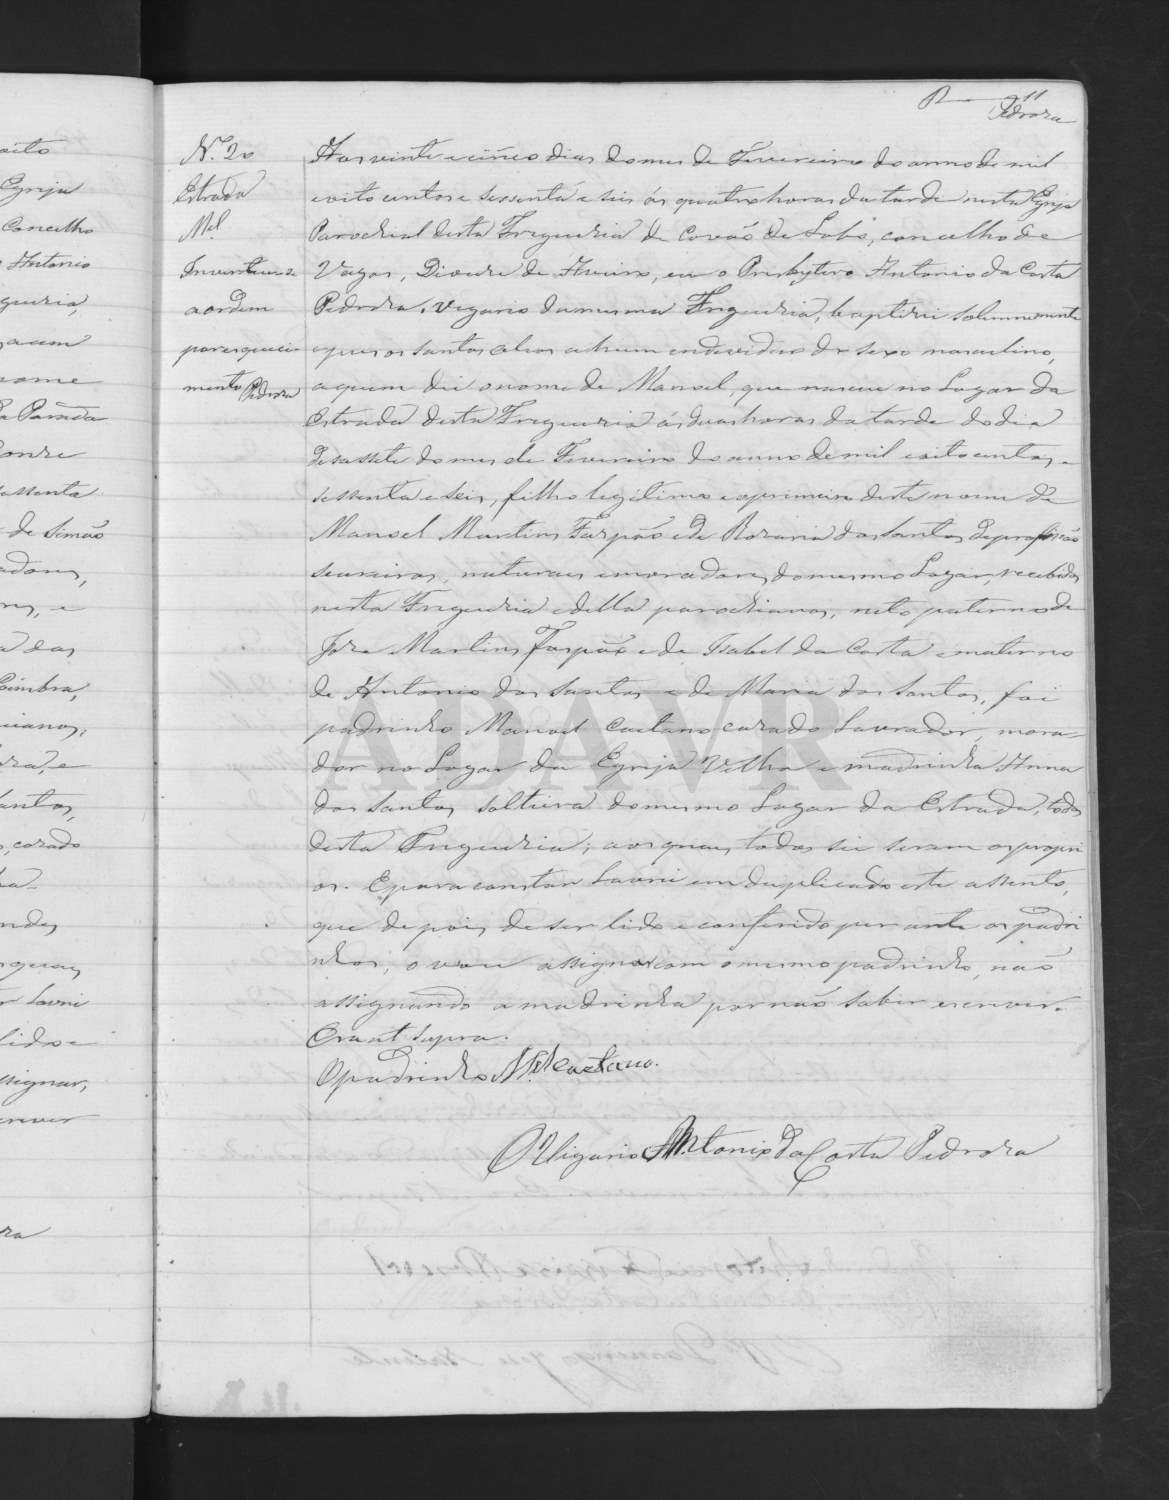 11
Pedroza
N.º 20
Estrada
M.el
Inverteu-se
a ordem
por esqueci-
mento Pedroza
Aos vinte e cinco dias do mes de Fevereiro do anno de mil
oito centos e sessenta e seis ás quatro horas da tarde nesta Egreja
Parochial desta Freguezia de Covão de Lobo, concelho de
Vagos, Diocese de Aveiro, eu o Presbytero Antonio da Costa
Pedroza, Vigario da mesma Freguezia, baptizei solemnemente
e puz os santos oleos a hum individuo do sexo masculino,
a quem dei o nome de Manoel, que nasceu no Lugar da
Estrada desta Freguezia ás duas horas da tarde do dia
desassete do mes de Fevereiro do anno de mil e oito centos e
sessenta e seis, filho legitimo e o primeiro deste nome de
Manoel Martins Farpão e de Rozaria dos Santos de profissão
seareiros, naturaes e moradores do mesmo Lugar, recebidos
nesta Freguezia e della parochianos, neto paterno de
Joze Martins Farpão e de Isabel da Costa e materno
de Antonio dos Santos e de Maria dos Santos, foi
padrinho Manoel Caetano cazado Lavrador, mora-
dor no Lugar da Egreja Velha e madrinha Anna
dos Santos solteira do mesmo Lugar da Estrada, todos
desta Freguezia; aos quaes todos sei serem os propri
os. E para constar lavrei em duplicado este assento,
que depois de ser lido e conferido perante os padri
nhos, o vou assignar com o mesmo padrinho, não
assignando a madrinha por não saber escrever.
Era ut supra.
O padrinho M.el Caetano.
O Vigario Antonio da Costa Pedroza
ADAVR
oito
Egreja
Concelho
Antonio
guezia,
nome
sessenta
de Simão
adores,
Coimbra,
Santos,
cazado
lavrei
lido e
assignar,
escrever